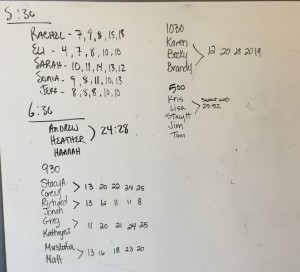 5:30
RACHEL - 7, 9, 8, 15, 13
ELI - 4, 7, 8, 10, 10
SARAH - 10, 11, 14, 13, 12
SONIA - 9, 8, 11, 10, 13
JEFF - 8, 8, 8, 10, 10
6:30
ANDREW
HEATHER 24:28
HANNAH
930
Stacy A
Corey 13 20 22 24 25
Richard
Jonah 13 12 11 11 8
Greg
Kathryn 11 20 21 24 25
Mustafa
Matt 13 16 18 23 20
1030
Karen
Becky 12 20 23 20 19
Brandy
500
Kris
Lisa
Stacy H 25:52
Jim
Tom